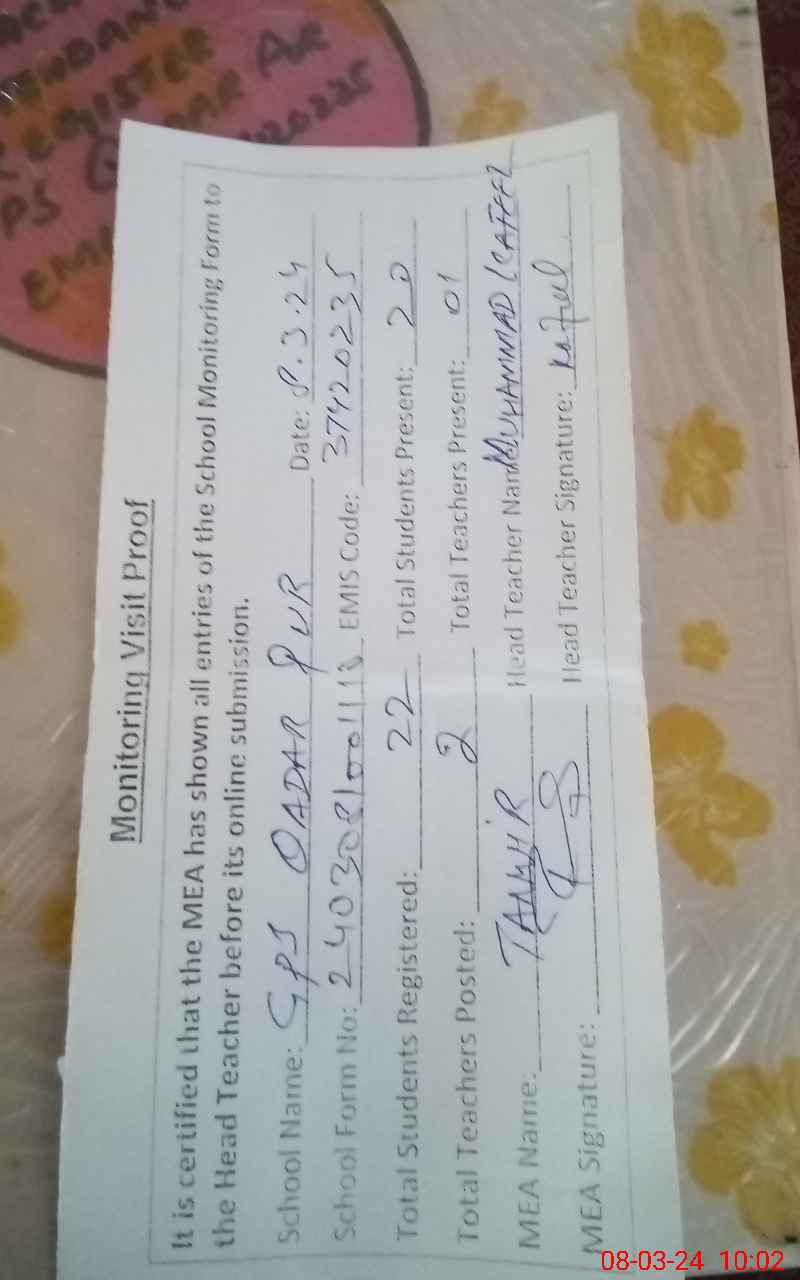 REGISTER
PS
EMI
Monitoring Visit Proof
It is certified that the MEA has shown all entries of the School Monitoring Form to
the Head Teacher before its online submission.
School Name: GPS QADAR PUR Date: 8.3.24
School Form No: 2403081001118 EMIS Code: 37420235
Total Students Registered: 22 Total Students Present: 20
Total Teachers Posted: 2 Total Teachers Present: 01
MEA Name: Head Teacher Name MUHAMMAD KAFEEL
MEA Signature: Head Teacher Signature: Kafeel
08-03-24 10:02